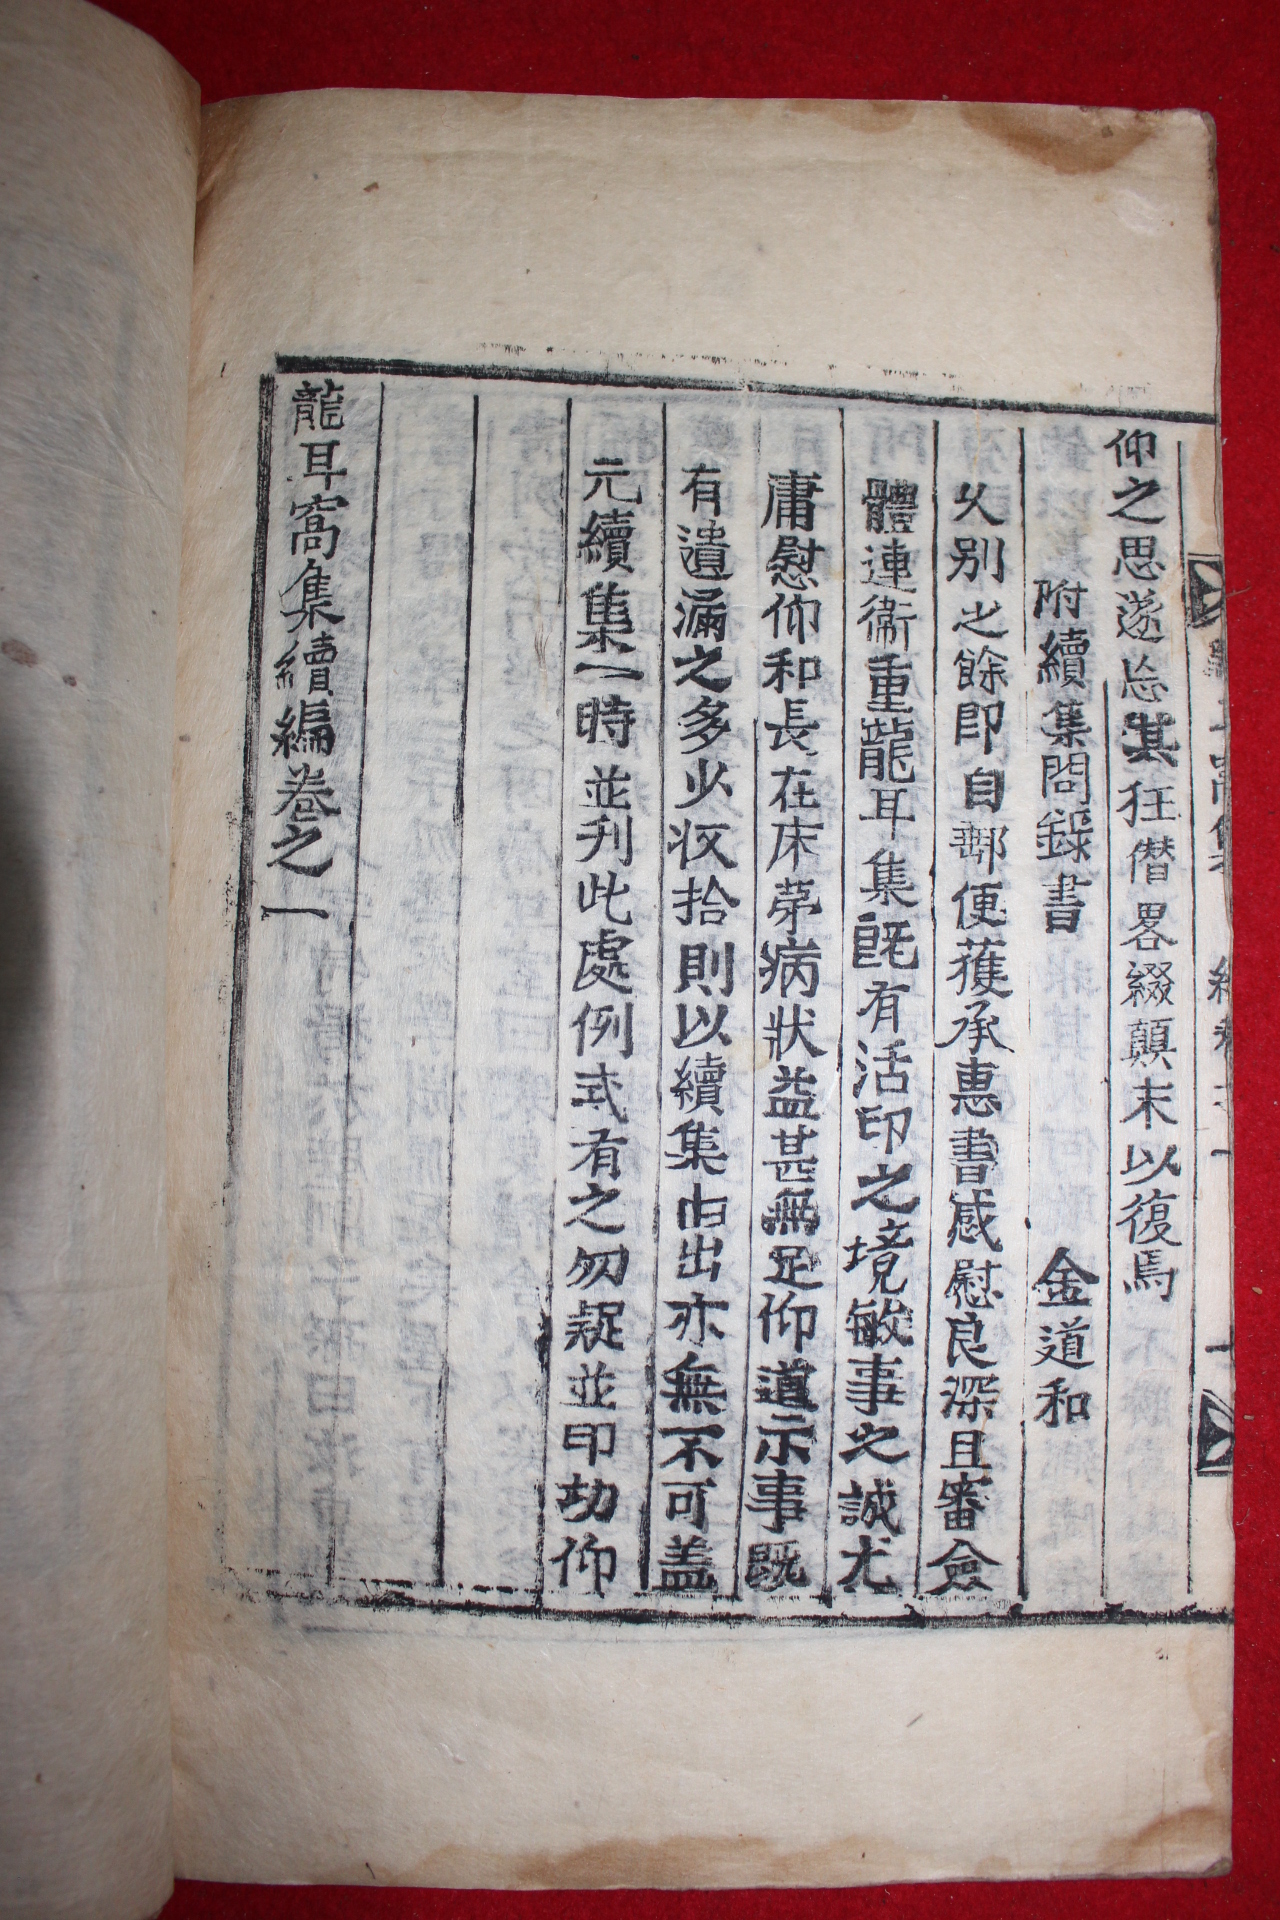 仰之思遂忘其狂僭畧綴顚末以復焉
附續集問錄書 金道和
火別之餘卽自郵便獲承惠書感慰良深且審僉
體連衞重龍耳集旣有活印之境敏事之誠尤
庸慰仰和長在床第病狀益甚無足仰道示事旣
有遺漏之多少收拾則以續集由出亦無不可盖
元續集一時並刋此處例式有之勿疑並印切仰
龍耳窩集續編卷之一